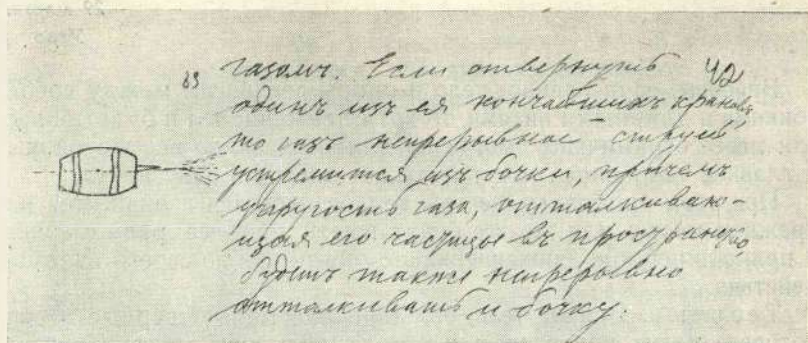 газомъ. Если отвернуть 42
одинъ изъ ея тончайшихъ крановъ,
то газъ непрерывной струей
устремится изъ бочки, причемъ
упругость газа, отталкиваю-
щая его частицы въ пространство,
будетъ также непрерывно
отталкивать и бочку.